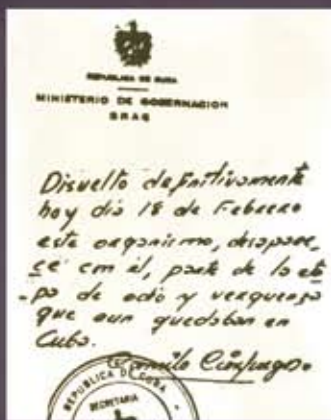 REPUBLICA DE CUBA
MINISTERIO DE GOBERNACION
BRAC
Disuelto definitivamente
hoy día 18 de Febrero
este organismo, disapare-
ce con él, parte de la eta
-pa de odio y verguenza
que aun quedaban en
Cuba.
Camilo Cienfuegos
REPUBLICA DE CUBA
SECRETARIA